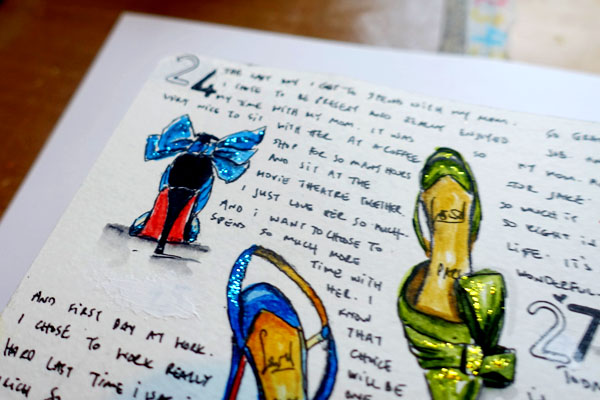 24
THE LAST DAY I GET TO SPEND WITH MY MOM.
I CHOSE TO BE PRESENT AND REALLY ENJOYED
MY TIME WITH MY MOM. IT WAS SO
VERY NICE TO SIT WITH HER AT A COFFEE
SHOP FOR SO MANY HOURS
AND SIT AT THE
MOVIE THEATRE TOGETHER.
I JUST LOVE HER SO MUCH.
AND I WANT TO CHOOSE TO
SPEND SO MUCH MORE
TIME WITH
HER. I
KNOW
THAT
CHOICE
WILL BE
ONE
AND FIRST DAY AT WORK.
I CHOSE TO WORK REALLY
HARD LAST TIME I
SO
SO
JOB AND
MY MOM
FOR
SO MUCH IT
SO RIGHT IN
LIFE. IT'S
WONDERFUL.
27